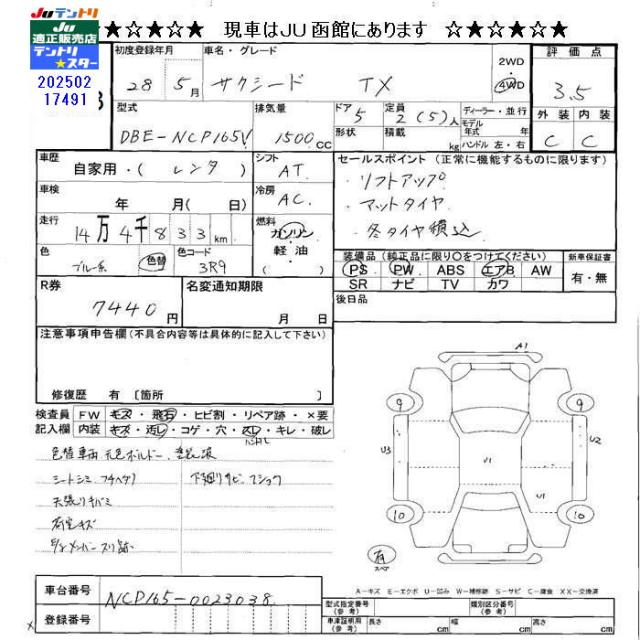 JUテントリ
JU
適正販売店
テントリ
★スター
202502
17491
★☆★☆★ 現車はJU函館にあります ★☆★☆★
初度登録年月
28年5月
車名・グレード
サクシード TX
2WD
4WD
評価点
3.5
外装 内装
C C
型式
DBE-NCP165V
排気量
1500 CC
ドア 5
形状
定員 2(5)人
積載 kg
ディーラー・並行
モデル年式 年
ハンドル 左・右
車歴
自家用・(レンタ)
シフト
AT
車検
年 月(日)
冷房
AC
走行
14万4千833km
燃料
ガソリン
軽油
( )
色
ブルー系
色替
色コード
3R9
セールスポイント(正常に機能するものに限ります)
・リフトアップ
・マットタイヤ
・冬タイヤ積込
装備品(純正品に限り○をつけてください)
PS PW ABS エアB AW
SR ナビ TV カワ
新車保証書
有・無
後日品
R券
7440円
名変通知期限
月 日
注意事項申告欄(不具合内容等は具体的に記入して下さい)
修復歴 有〔箇所 〕
検査員記入欄
FW キズ・飛石・ヒビ割・リペア跡・×要
内装 キズ・汚レ・コゲ・穴・スレ・キレ・破レ
色替車両 元色ボルドー
シートシミ
下廻りサビ
天張りキバミ
荷室キズ
A1
9
9
U3
U2
U1
U1
10
10
有
スペア
A-キズ E-エクボ U-凹み W-補修跡 S-サビ C-腐食 XX-交換済
車台番号
NCP165-0023038
登録番号
型式指定番号(参考)
類別区分番号(参考)
車庫証明用(参考)
長さ cm 幅 cm 高さ cm